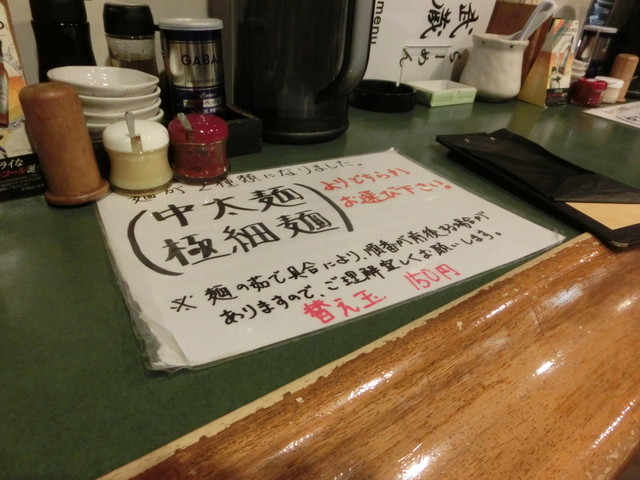 menu
武蔵
らーめん
GABAN
麺が2種類になりました。
中太麺
極細麺
よりどちらか
お選び下さい。
※麺の茹で具合により、順番が前後する場合が
ありますので、ご理解宜しくお願いします。
替え玉 150円